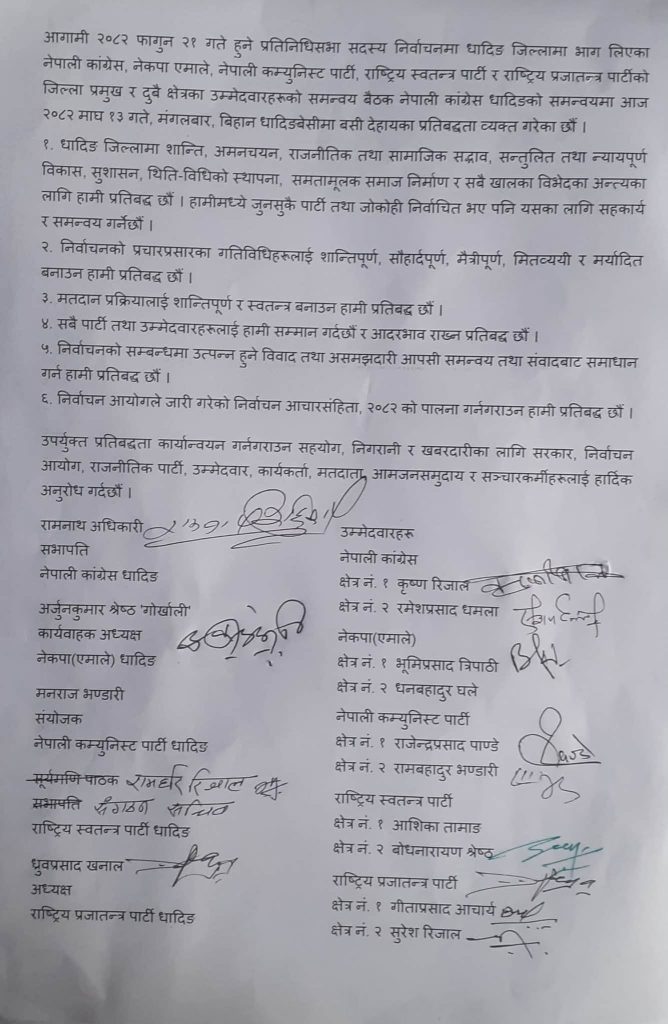 आगामी २०८२ फागुन २१ गते हुने प्रतिनिधिसभा सदस्य निर्वाचनमा धादिङ जिल्लामा भाग लिएका
नेपाली कांग्रेस, नेकपा एमाले, नेपाली कम्युनिस्ट पार्टी, राष्ट्रिय स्वतन्त्र पार्टी र राष्ट्रिय प्रजातन्त्र पार्टीको
जिल्ला प्रमुख र दुवै क्षेत्रका उम्मेदवारहरूको समन्वय बैठक नेपाली कांग्रेस धादिङको समन्वयमा आज
२०८२ माघ १३ गते, मंगलबार, बिहान धादिङबेसीमा बसी देहायका प्रतिबद्धता व्यक्त गरेका छौं ।
१. धादिङ जिल्लामा शान्ति, अमनचयन, राजनीतिक तथा सामाजिक सद्भाव, सन्तुलित तथा न्यायपूर्ण
विकास, सुशासन, थिति-विधिको स्थापना, समतामूलक समाज निर्माण र सबै खालका विभेदका अन्त्यका
लागि हामी प्रतिबद्ध छौं । हामीमध्ये जुनसुकै पार्टी तथा जोकोही निर्वाचित भए पनि यसका लागि सहकार्य
र समन्वय गर्नेछौं ।
२. निर्वाचनको प्रचारप्रसारका गतिविधिहरूलाई शान्तिपूर्ण, सौहार्दपूर्ण, मैत्रीपूर्ण, मितव्ययी र मर्यादित
बनाउन हामी प्रतिबद्ध छौं ।
३. मतदान प्रक्रियालाई शान्तिपूर्ण र स्वतन्त्र बनाउन हामी प्रतिबद्ध छौं ।
४. सबै पार्टी तथा उम्मेदवारहरूलाई हामी सम्मान गर्दछौं र आदरभाव राख्न प्रतिबद्ध छौं ।
५. निर्वाचनको सम्बन्धमा उत्पन्न हुने विवाद तथा असमझदारी आपसी समन्वय तथा संवादबाट समाधान
गर्न हामी प्रतिबद्ध छौं ।
६. निर्वाचन आयोगले जारी गरेको निर्वाचन आचारसंहिता, २०८२ को पालना गर्नगराउन हामी प्रतिबद्ध छौं ।
उपर्युक्त प्रतिबद्धता कार्यान्वयन गर्नगराउन सहयोग, निगरानी र खबरदारीका लागि सरकार, निर्वाचन
आयोग, राजनीतिक पार्टी, उम्मेदवार, कार्यकर्ता, मतदाता, आमजनसमुदाय र सञ्चारकर्मीहरूलाई हार्दिक
अनुरोध गर्दछौं ।
रामनाथ अधिकारी
सभापति
नेपाली कांग्रेस धादिङ
अर्जुनकुमार श्रेष्ठ 'गोर्खाली'
कार्यवाहक अध्यक्ष
नेकपा(एमाले) धादिङ
मनराज भण्डारी
संयोजक
नेपाली कम्युनिस्ट पार्टी धादिङ
सूर्यमणि पाठक रामहरि रिजाल
सभापति संगठन सचिव
राष्ट्रिय स्वतन्त्र पार्टी धादिङ
ध्रुवप्रसाद खनाल
अध्यक्ष
राष्ट्रिय प्रजातन्त्र पार्टी धादिङ
उम्मेदवारहरू
नेपाली कांग्रेस
क्षेत्र नं. १ कृष्ण रिजाल
क्षेत्र नं. २ रमेशप्रसाद धमला
नेकपा(एमाले)
क्षेत्र नं. १ भूमिप्रसाद त्रिपाठी
क्षेत्र नं. २ धनबहादुर घले
नेपाली कम्युनिस्ट पार्टी
क्षेत्र नं. १ राजेन्द्रप्रसाद पाण्डे
क्षेत्र नं. २ रामबहादुर भण्डारी
राष्ट्रिय स्वतन्त्र पार्टी
क्षेत्र नं. १ आशिका तामाङ
क्षेत्र नं. २ बोधनारायण श्रेष्ठ
राष्ट्रिय प्रजातन्त्र पार्टी
क्षेत्र नं. १ गीताप्रसाद आचार्य
क्षेत्र नं. २ सुरेश रिजाल